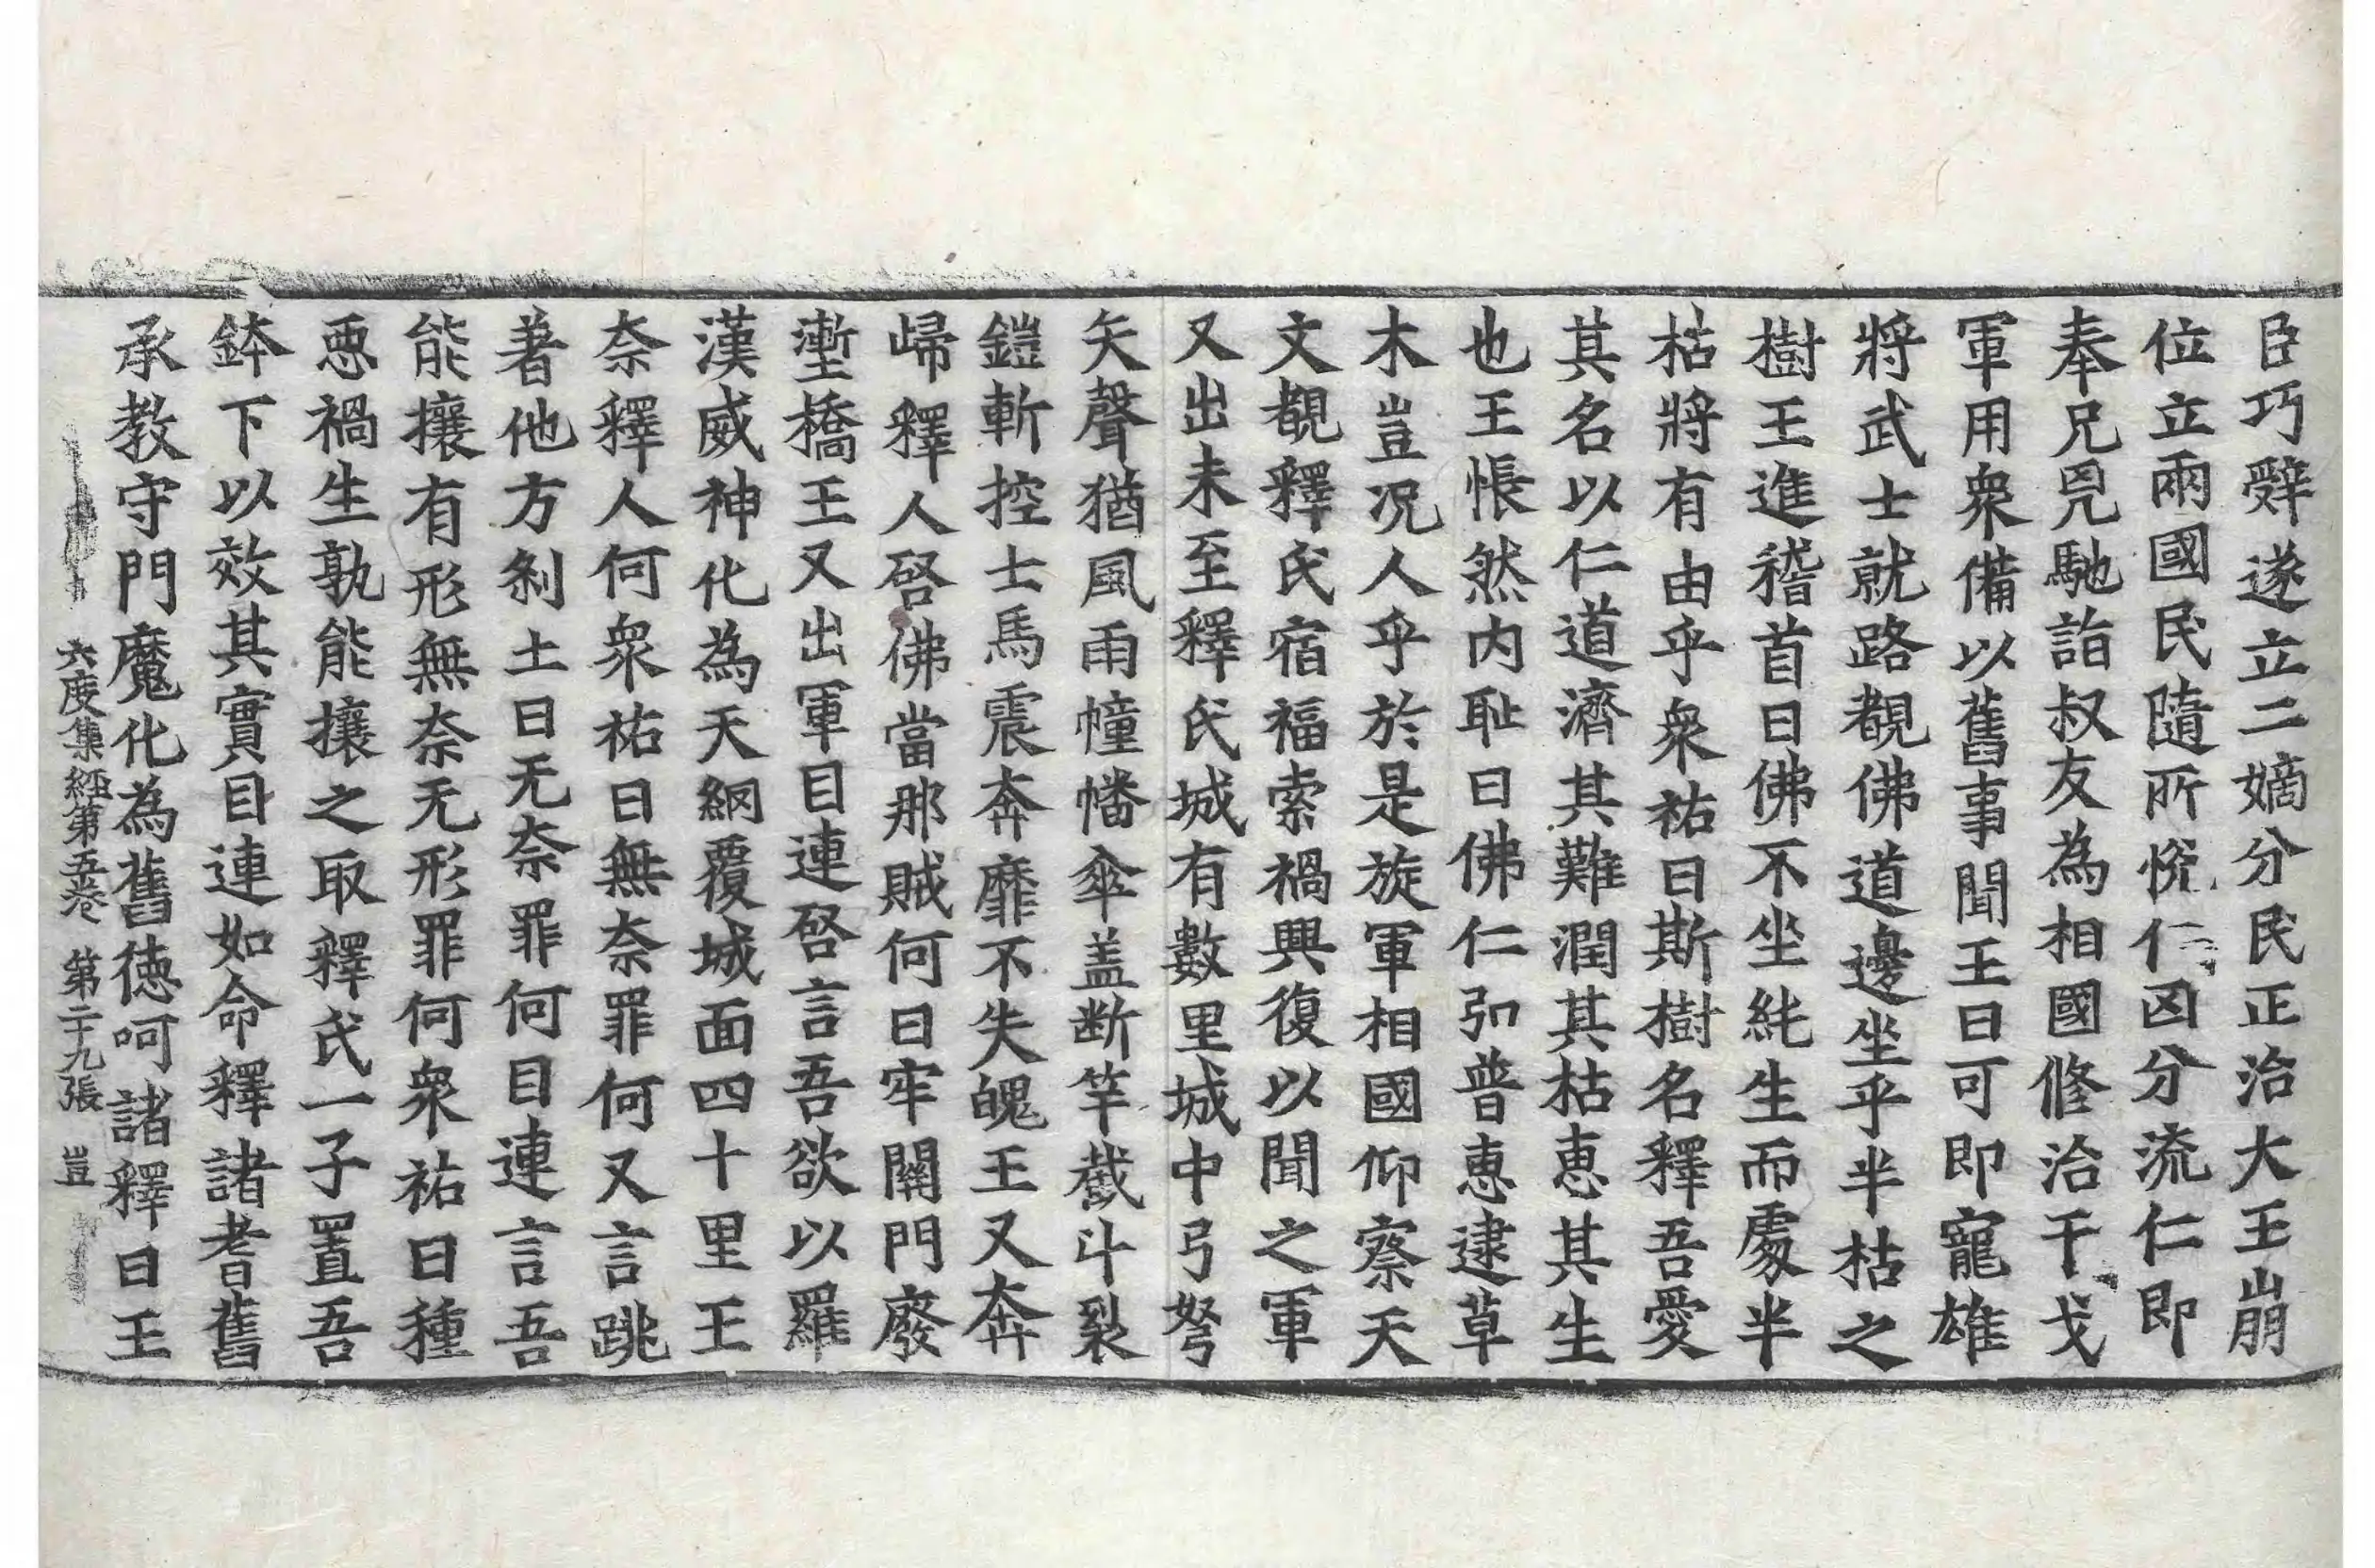 臣巧辭遂立二嫡分民正治大王崩
位立兩國民隨所悅仁凶分流仁即
奉兄兇馳詣叔友為相國修治干戈
軍用衆備以舊事聞王曰可即寵雄
將武士就路覩佛道邊坐乎半枯之
樹王進稽首曰佛不坐純生而處半
枯將有由乎衆祐曰斯樹名釋吾愛
其名以仁道濟其難潤其枯惠其生
也王悵然内恥曰佛仁弘普惠逮草
木豈況人乎於是旋軍相國仰察天
文覩釋氏宿福索禍興復以聞之軍
又出未至釋氏城有數里城中弓弩
矢聲猶風雨幢幡傘盖断竿截斗裂
鎧斬控士馬震奔靡不失魄王又奔
歸釋人啓佛當那賊何曰牢關門廢
壍橋王又出軍目連啓言吾欲以羅
漢威神化為天網覆城面四十里王
奈釋人何衆祐曰無奈罪何又言跳
著他方刹土曰无奈罪何目連言吾
能攘有形無奈无形罪何衆祐曰種
惡禍生孰能攘之取釋氏一子置吾
鉢下以效其實目連如命釋諸耆舊
承教守門魔化為舊徳呵諸釋曰王
六度集經第五卷　第二十九張　豈